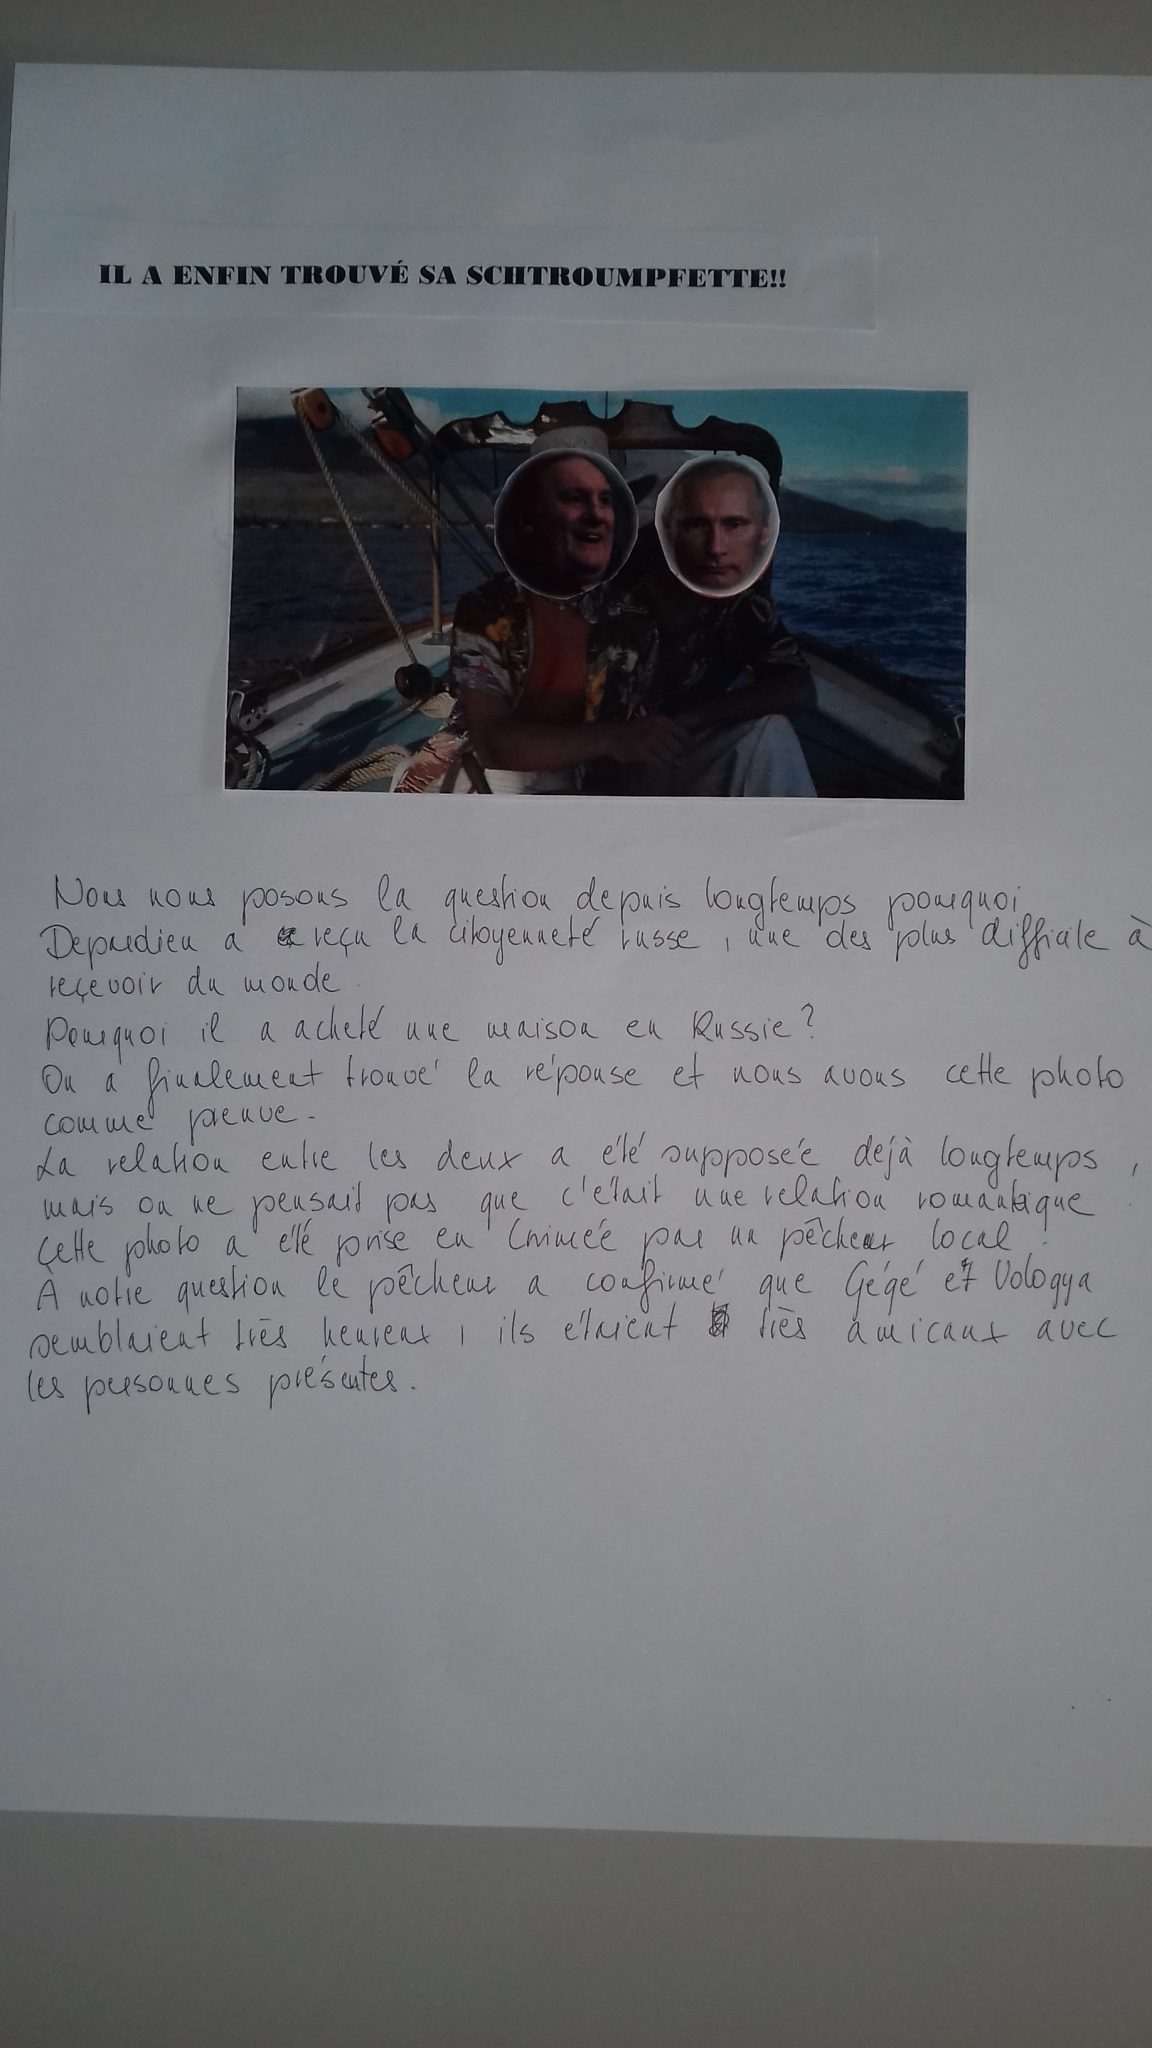 IL A ENFIN TROUVÉ SA SCHTROUMPFETTE!!
Nous nous posons la question depuis longtemps pourquoi
Depardieu a reçu la citoyenneté russe, une des plus difficile à
reçevoir du monde.
Pourquoi il a acheté une maison en Russie?
On a finalement trouvé la réponse et nous avons cette photo
comme preuve.
La relation entre les deux a été supposée déjà longtemps,
mais on ne pensait pas que c'était une relation romantique.
Cette photo a été prise en Crimée par un pêcheur local.
À notre question le pêcheur a confirmé que Gégé et Vologya
semblaient très heureux, ils étaient très amicaux avec
les personnes présentes.